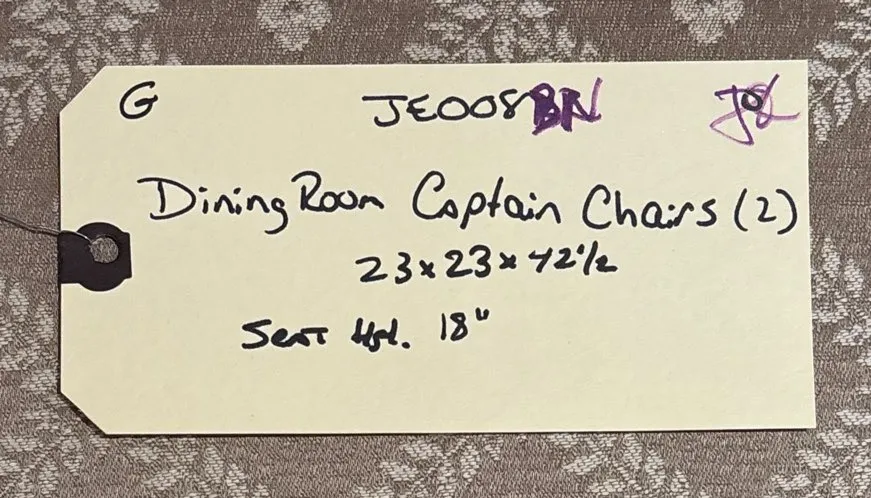 G JE008BN
Dining Room Captain Chairs (2)
23x23x42½
Seat Hgt. 18"